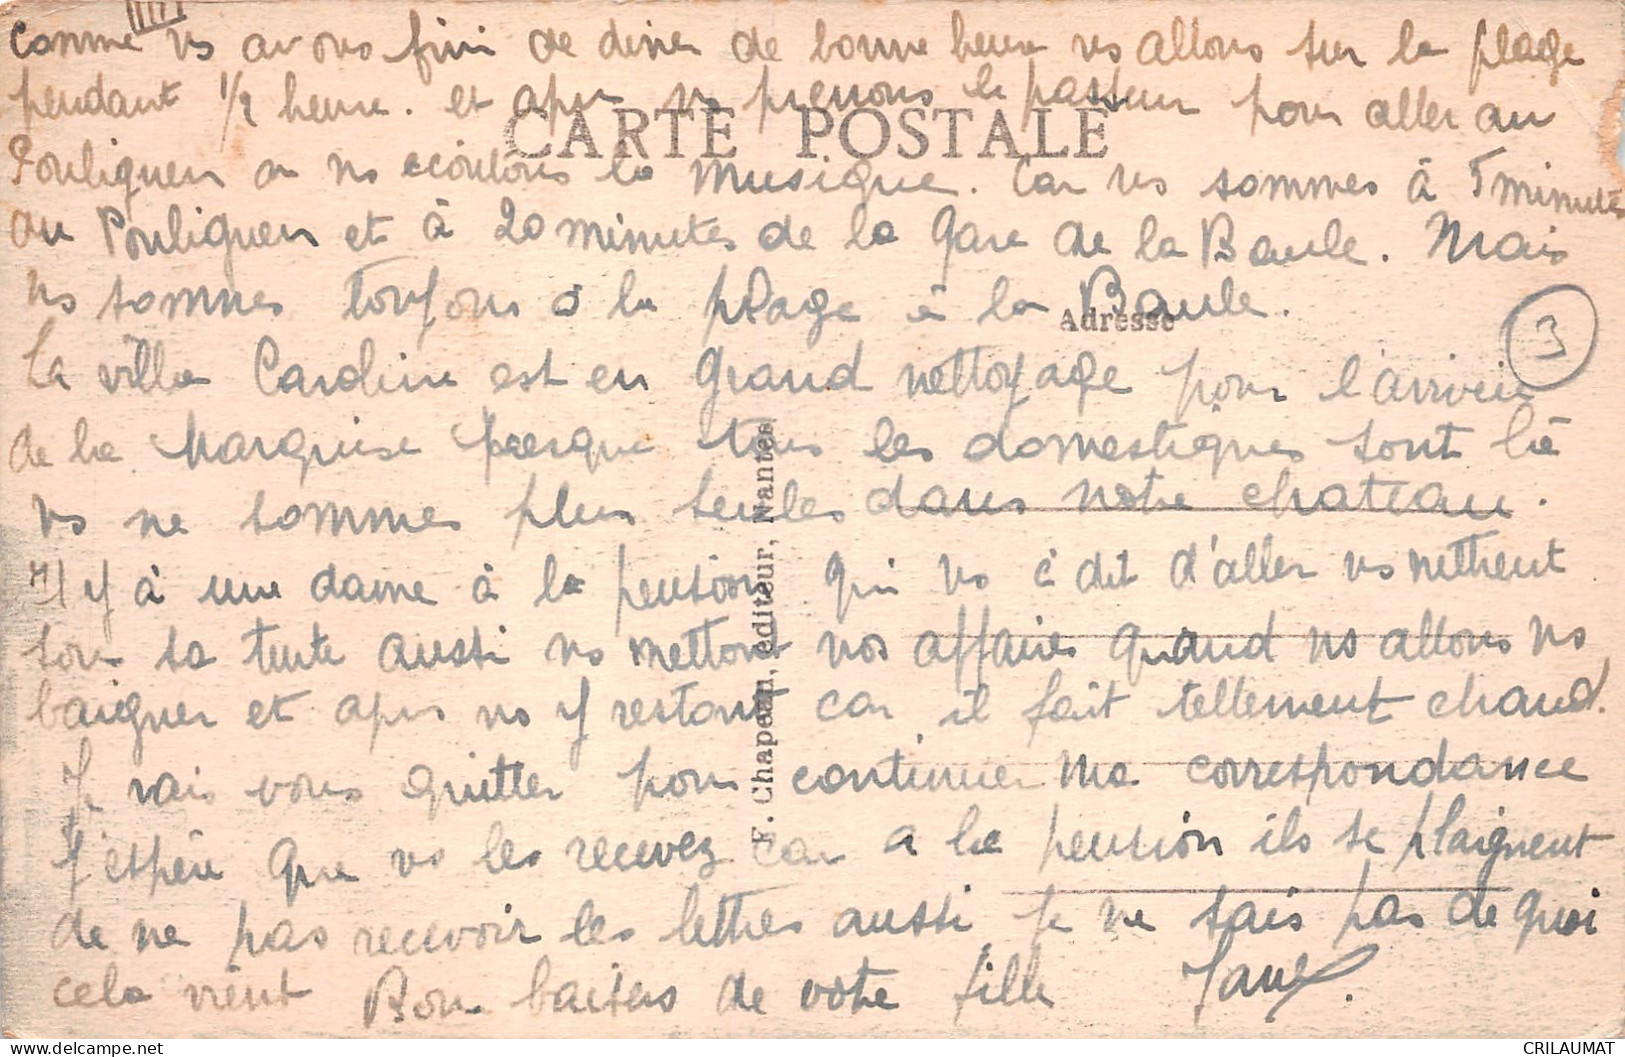 IIII
comme ns avons fini de diner de bonne heure ns allons sur la plage
pendant 1/2 heure. et apres ns prenons le passeur pour aller au
CARTE POSTALE
Pouliguen ou ns écoutons la musique. Car ns sommes à 5 minutes
du Pouliguen et à 20 minutes de la gare de la Baule. Mais
ns sommes toujours à la plage à la Baule.
Adresse
3
La villa Caroline est en grand nettoyage pour l'arrivée
de la Marquise presque tous les domestiques sont là
ns ne sommes plus seules dans notre chateau.
Il y à une dame à la pension qui ns à dit d'aller ns mettrent
sous sa tente aussi ns mettont nos affaires quand ns allons ns
baigner et apres ns y restont car il fait tellement chaud.
Je vais vous quitter pour continuer ma correspondance
J'espère que vs les recevez car a la pension ils se plaignent
de ne pas recevoir les lettres aussi je ne sais pas de quoi
cela vient Bon baisers de votre fille
F. Chapeau, éditeur, Nantes
delcampe.net
CRILAUMAT